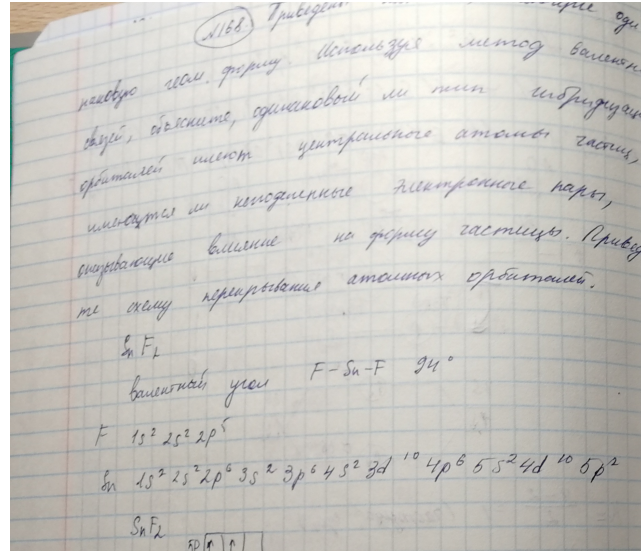 №168. Приведены одина
ковую геом. форму. Используя метод валентн
связей, объясните, одинаковый ли тип гибридизац
орбиталей имеют центрального атомы частиц,
имеются ли неподеленные электронные пары,
оказывающие влияние на форму частицы. Приведи
те схему перекрывания атомных орбиталей.
SnF₂
валентный угол F-Sn-F 94°
F 1s² 2s² 2p⁵
Sn 1s² 2s² 2p⁶ 3s² 3p⁶ 4s² 3d¹⁰ 4p⁶ 5s² 4d¹⁰ 5p²
SnF₂
5p ↑ ↑